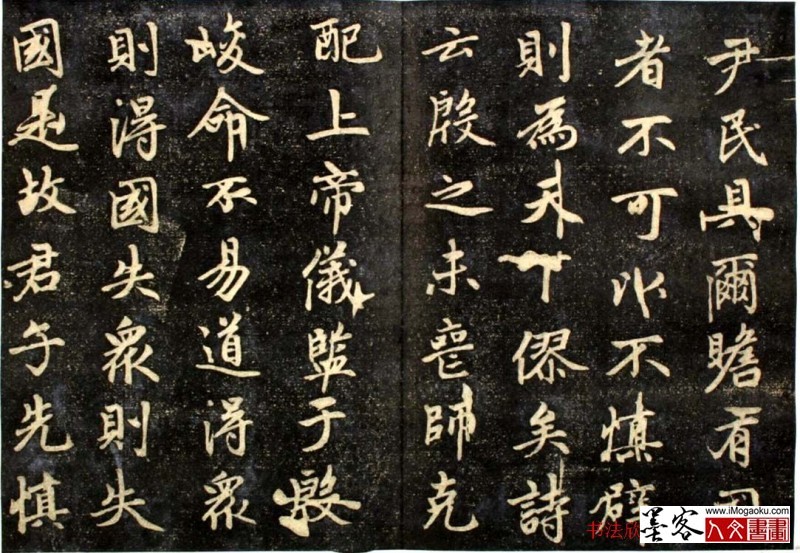 尹民具爾瞻有
者不可以不慎辟
則為天下僇矣詩
云殷之未喪師克
配上帝儀監于殷
峻命不易道得眾
則得國失眾則失
國是故君子先慎
书法欣
墨客
www.iMogaoku.com
人文書畫